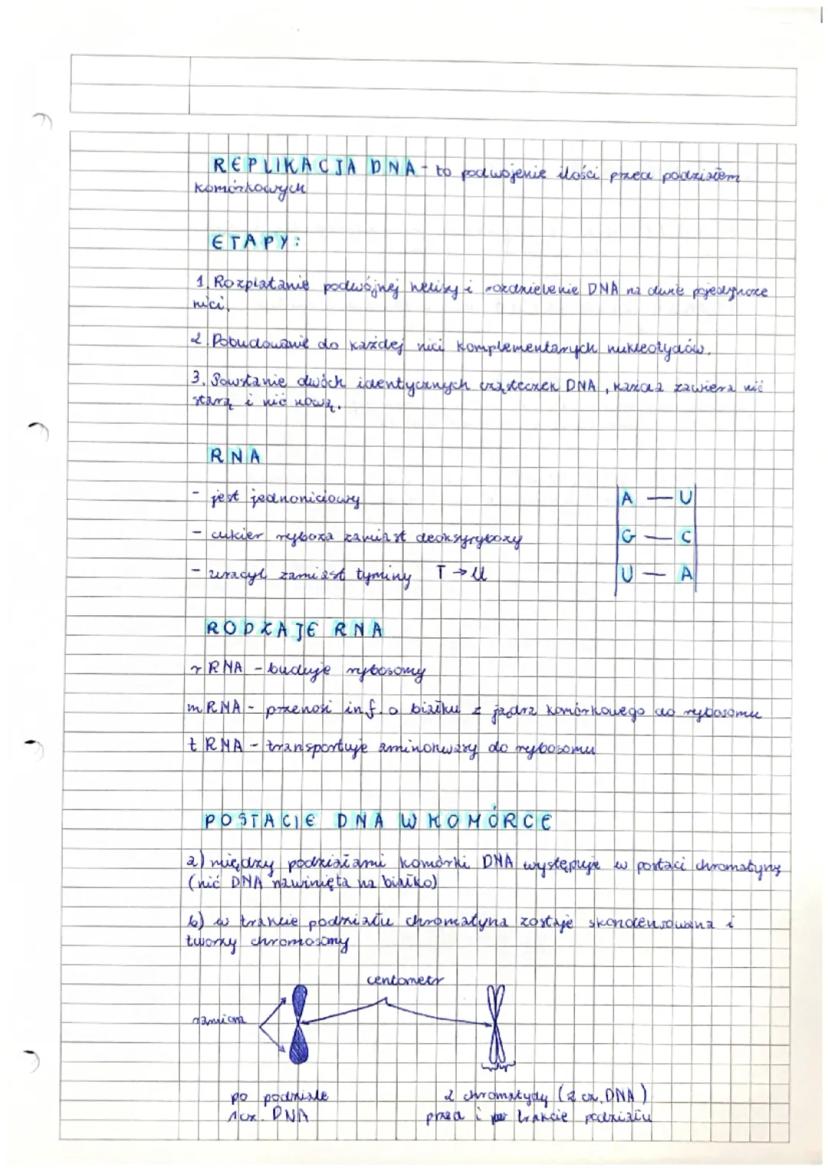 REPLIKACJA DNA - to podwojenie ilości przed podziałem
komórkowych
ETAPY:
1. Rozplatanie podwójnej helisy i rozdzielenie DNA na dwie pojedyncze
nici.
2. Dobudowanie do każdej nici komplementarnych nukleotydów.
3. Powstanie dwóch identycznych cząsteczek DNA, każda zawiera nić
starą i nić nową.
RNA
- jest jednoniciowy
- cukier ryboza zamiast deoksyrybozy
- uracyl zamiast tyminy T → U
A — U
G — C
U — A
RODZAJE RNA
rRNA - buduje rybosomy
mRNA - przenosi inf. o białku z jądra komórkowego do rybosomu
tRNA - transportuje aminokwasy do rybosomu
POSTACIE DNA W KOMÓRCE
a) między podziałami komórki DNA występuje w postaci chromatyny
(nić DNA nawinięta na białko)
b) w trakcie podziału chromatyna zostaje skondensowana i
tworzy chromosomy
centometr
ramiona
po podziale
1 cz. DNA
2 chromatydy (2 cz. DNA)
przed i w trakcie podziału